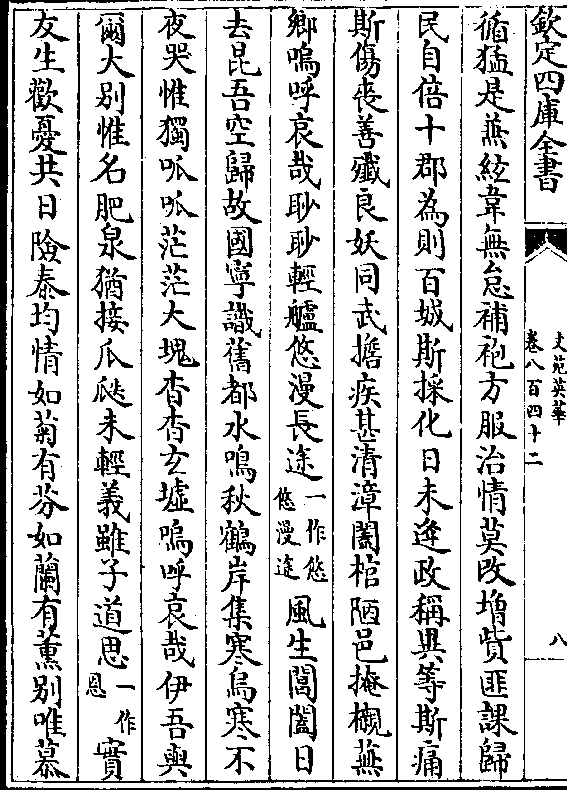 欽定四庫全書
文苑英華
卷八百四十二
八
循猛是燕絃韋無怠補袍方服治情莫改增貲匪課歸
民自倍十郡為則百城斯採化日未逄政稱異等斯痛
斯傷喪善殲良妖同武擔疾甚清漳闔棺陋邑掩櫬蕪
鄉嗚呼哀哉眇眇輕艫悠漫長途一作悠悠漫途風生閶闔日
去昆吾空歸故國寧識舊都水鳴秋鶴岸集寒烏寒不
夜哭惟獨呱呱茫茫大塊杳杳玄墟嗚呼哀哉伊吾與
爾大别惟名肥泉猶接瓜瓞未輕義雖子道思一作恩實
友生歡憂共日險泰均情如菊有芬如蘭有薰别唯慕